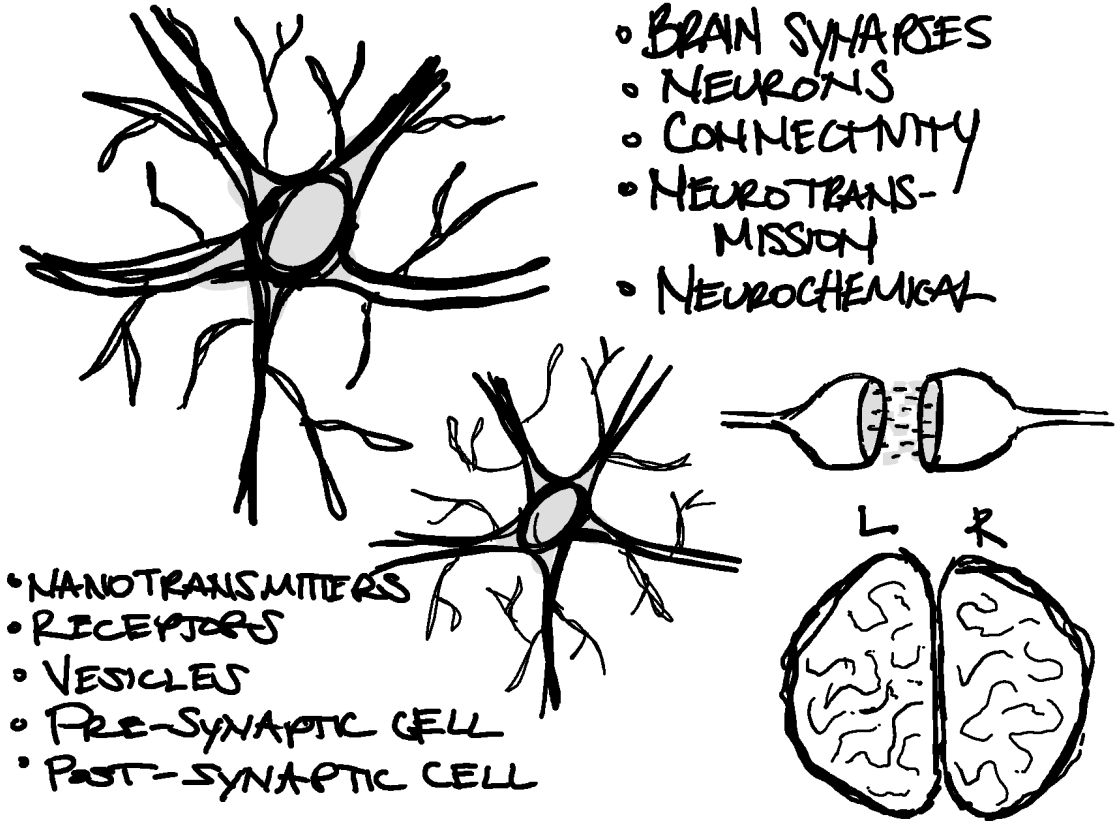 • BRAIN SYNAPSES
• NEURONS
• CONNECTIVITY
• NEUROTRANS-
MISSION
• NEUROCHEMICAL
L R
• NANOTRANSMITTERS
• RECEPTORS
• VESICLES
• PRE-SYNAPTIC CELL
• POST-SYNAPTIC CELL